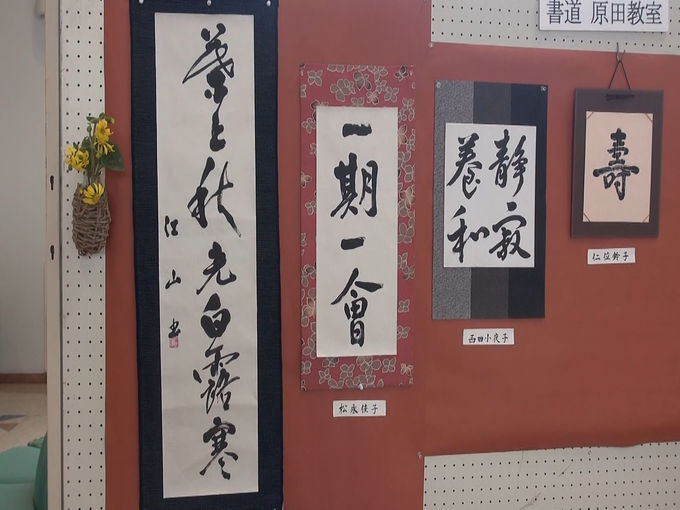 書道 原田教室
壽
仁位鈴子
静寂
養和
西田小夜子
一期一會
松永佳子
葉上秋光白露寒
江山書